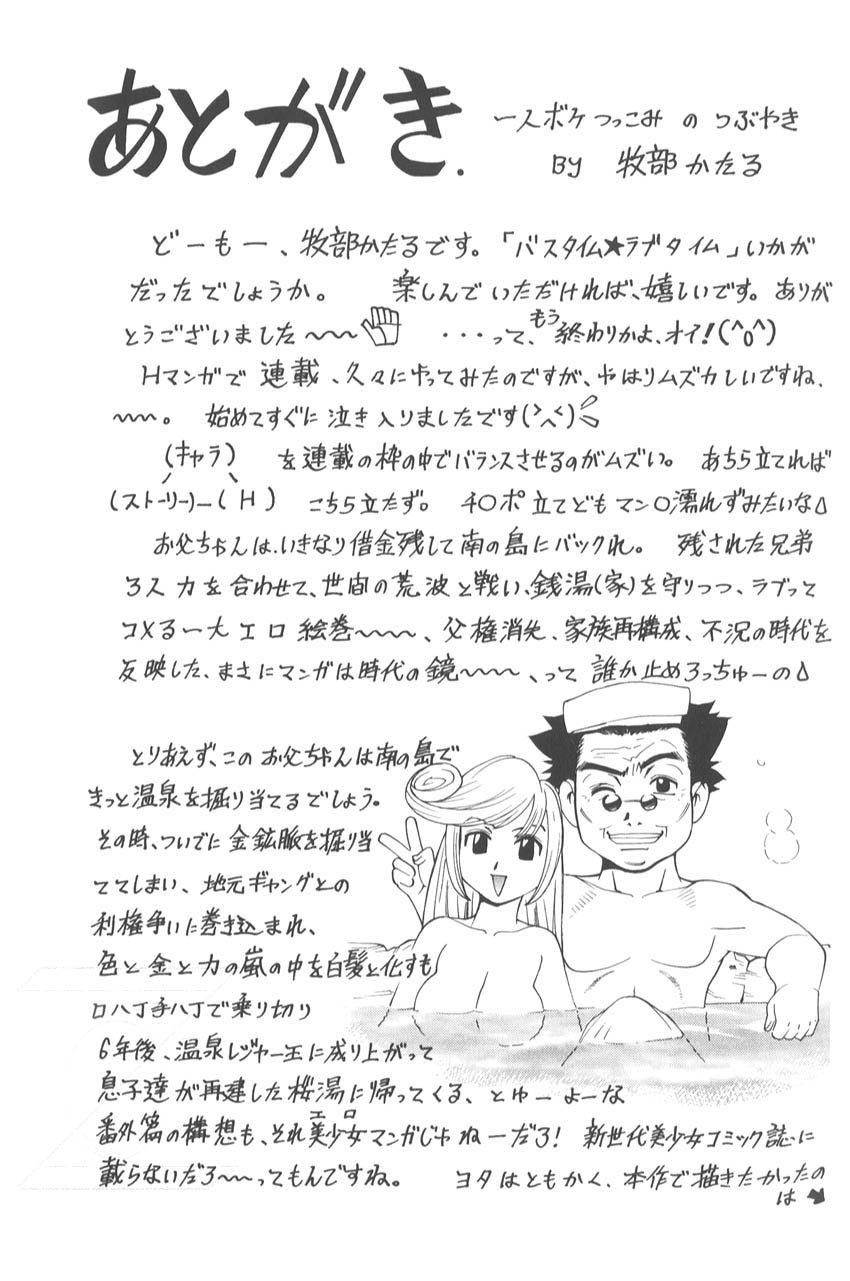 あとがき.
一人ボケつっこみ の つぶやき
BY 牧部かたる
どーもー、牧部かたるです。「バスタイム★ラブタイム」いかが
だったでしょうか。 楽しんでいただければ、嬉しいです。ありが
とうございました〜〜 ・・・って、もう終わりかよ、オイ!(^o^)
Hマンガで連載、久々にやってみたのですが、やはりムズカしいですね、
〜〜。 始めてすぐに泣き入りましたです(>へ<)
(キャラ) を連載の枠の中でバランスさせるのがムズい。 あちら立てれば
(ストーリー)―( H ) こちら立たず。 チ〇ポ立てどもマン〇濡れずみたいな
お父ちゃんは、いきなり借金残して南の島にバックれ。 残された兄弟
3人力を合わせて、世間の荒波と戦い、銭湯(家)を守りつつ、ラブって
コメる一大エロ絵巻〜〜〜、父権消失、家族再構成、不況の時代を
反映した、まさにマンガは時代の鏡〜〜〜、って 誰か止めろっちゅーの
とりあえず、このお父ちゃんは南の島で
きっと温泉を掘り当てるでしょう。
その時、ついでに金鉱脈を掘り当
ててしまい、地元ギャングとの
利権争いに巻き込まれ、
色と金と力の嵐の中を白髪と化すも
口八丁手八丁で乗り切り
6年後、温泉レジャー王に成り上がって
息子達が再建した桜湯に帰ってくる、とゆーよーな
番外篇の構想も、それ美少女エロマンガじゃねーだろ! 新世代美少女コミック誌に
載らないだろ〜〜ってもんですね。 ヨタはともかく、本作で描きたかったの
は